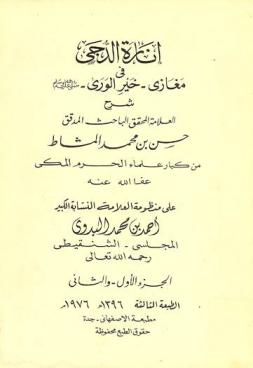 إنارة الدجى
في
مغازى - خير الورى - ﷺ
شرح
العلامة المحقق الباحث المدقق
حسن بن محمد المشاط
من كبار علماء الحرم المكى
عفا الله عنه
على منظومة العلامة النسابة الكبير
أحمد بن محمد البدوى
المجلسى - الشنقيطى
رحمه الله تعالى
الجزء الأول - والثانى
الطبعة الثالثة ١٣٩٦هـ ١٩٧٦م
مطبعة الاصفهانى - جدة
حقوق الطبع محفوظة